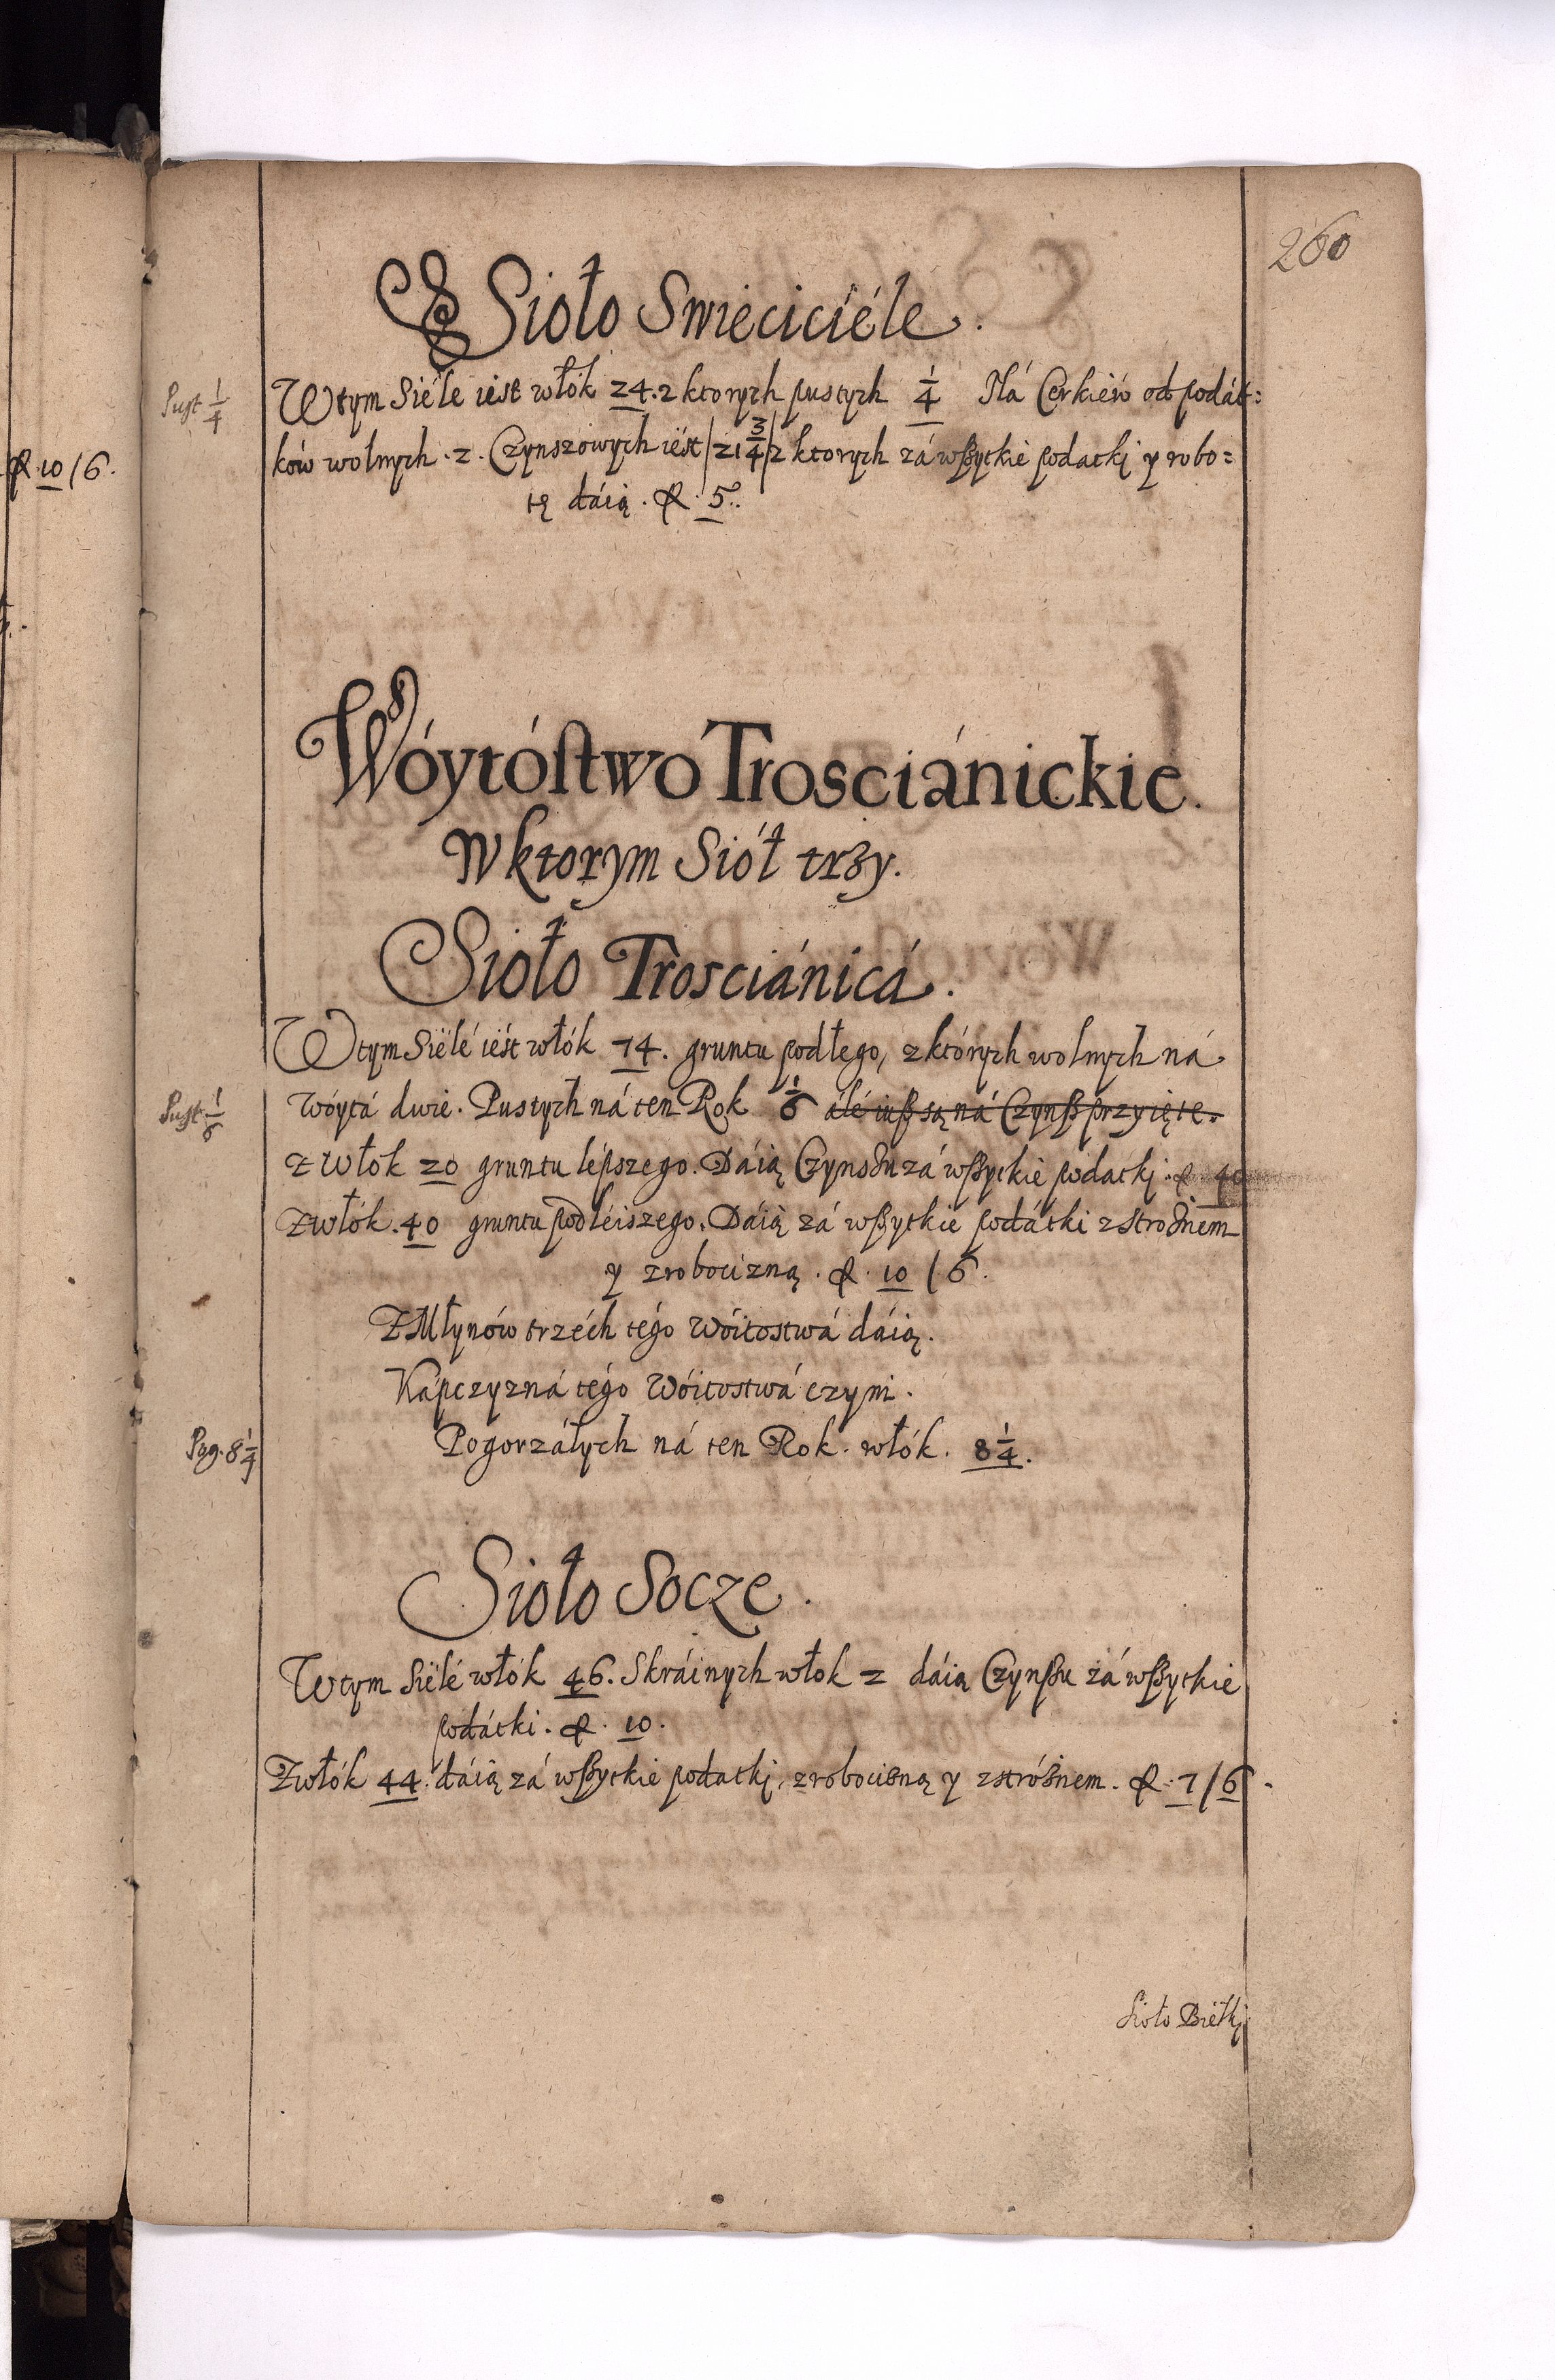 260
Sioło Swieciciéle.
Pust 1/4
W tym Siéle iest włók 24. z ktorych pustych 1/4 Ná Cerkiéw od podát=
ków wolnych. 2. Czynszowych iést /21 3/4/ z ktorych zá wszytkie podatkj y robo=
tę dáią. f. 5..
f. 10/6.
Wóytóstwo Trosciánickie.
W ktorym Siół trzy.
Sioło Trosciánicá.
W tym Siélé iést włók 74. gruntu podłego, z których wolnych ná
Pust 1/6
Wóytá dwie. Pustych ná ten Rok 1/6 álé iusz są ná Czynsz przyięte.
Z Włók 20 gruntu lépszego. Dáią Czynszu zá wszytkie podatkj. f. 40
Z włók. 40 gruntu podléiszego. Dáią zá wszytkie podátki z stróżnem
y z robocizną. f. 10/6.
Z Młynów trzéch tégo Wóitostwá dáią.
Kápczyzná tégo Wóitostwá czyni.
Pog. 8 1/4
Pogorzáłych ná ten Rok. włók. 8 1/4.
Sioło Socze.
W tym Siélé włók 46. Skráinych włok 2 dáią Czynszu zá wszytkie
podátki. f. 10.
Z włók 44. dáią zá wszytkie podatkj, z robocizną y z stróżnem. f. 7/6.
Sioło Biélkj